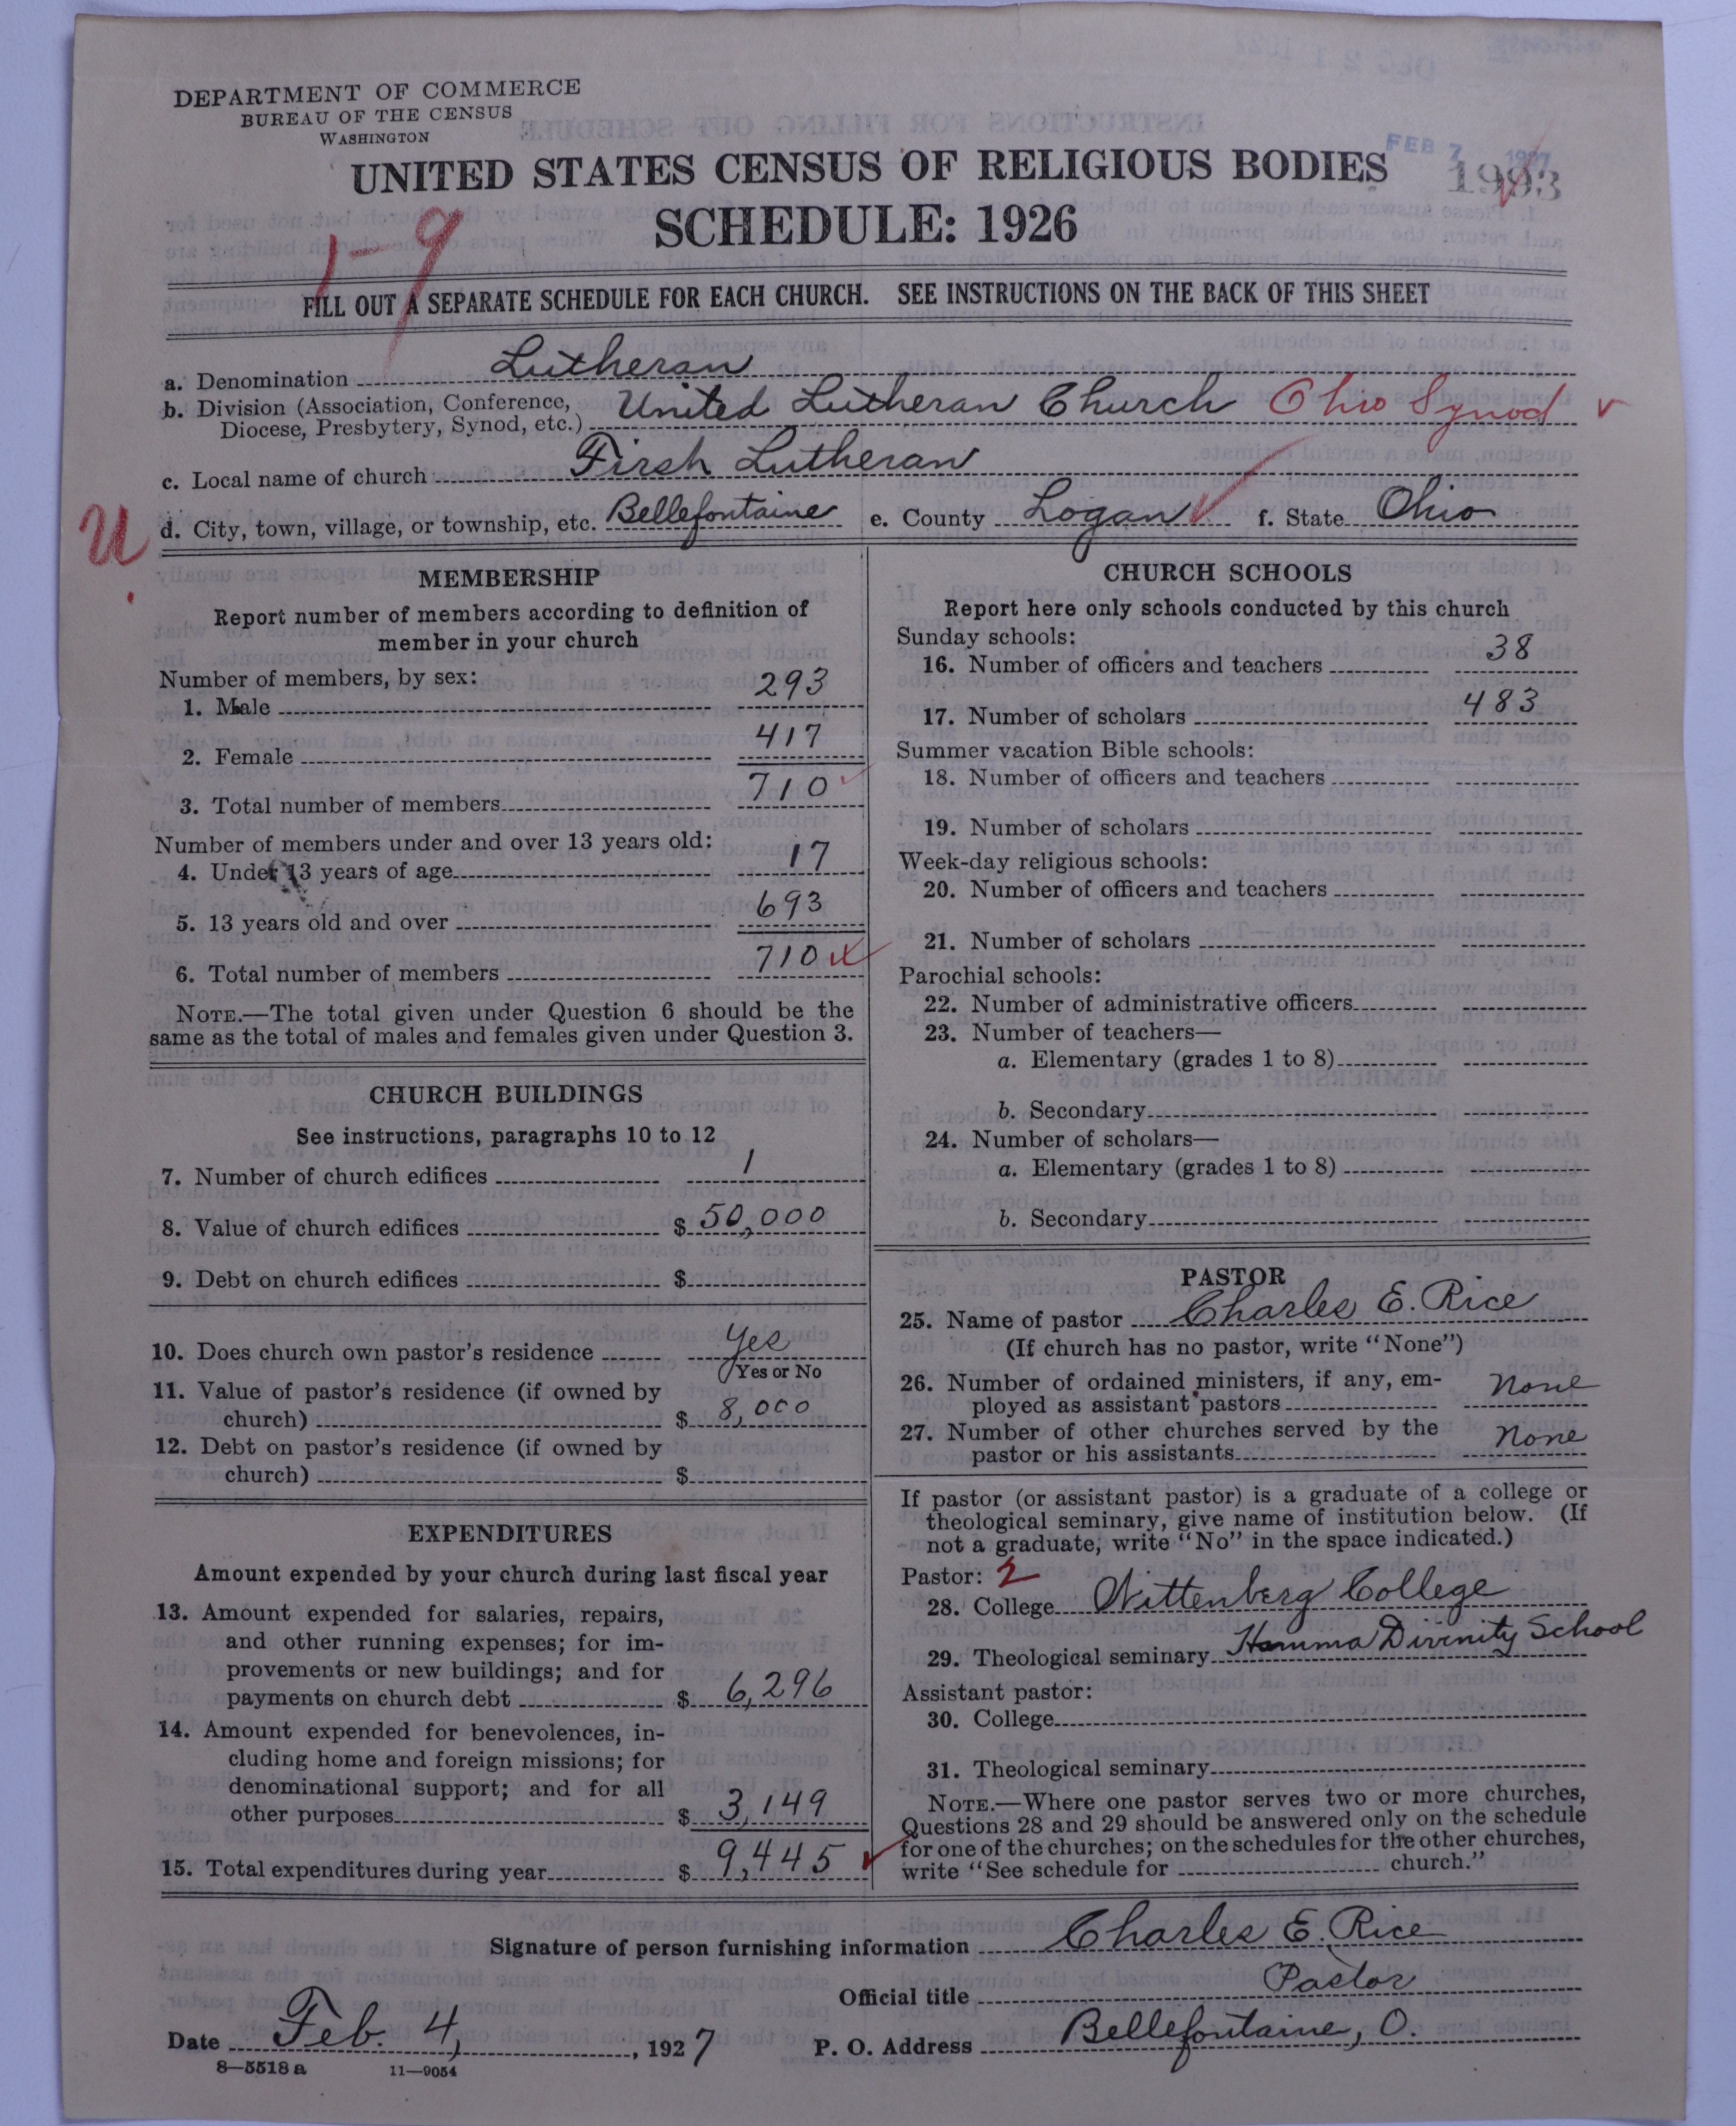 DEPARTMENT OF COMMERCE
BUREAU OF THE CENSUS
WASHINGTON
UNITED STATES CENSUS OF RELIGIOUS BODIES
FEB 7 1927
SCHEDULE: 1926
1-9
FILL OUT A SEPARATE SCHEDULE FOR EACH CHURCH. SEE INSTRUCTIONS ON THE BACK OF THIS SHEET
a. Denomination Lutheran
b. Division (Association, Conference, Diocese, Presbytery, Synod, etc.) United Lutheran Church Ohio Synod
c. Local name of church First Lutheran
U
d. City, town, village, or township, etc. Bellefontaine e. County Logan f. State Ohio
MEMBERSHIP
Report number of members according to definition of
member in your church
Number of members, by sex:
1. Male 293
2. Female 417
3. Total number of members 710
Number of members under and over 13 years old:
4. Under 13 years of age 17
5. 13 years old and over 693
6. Total number of members 710
NOTE.—The total given under Question 6 should be the
same as the total of males and females given under Question 3.
CHURCH BUILDINGS
See instructions, paragraphs 10 to 12
7. Number of church edifices 1
8. Value of church edifices $ 50,000
9. Debt on church edifices $
10. Does church own pastor's residence Yes
Yes or No
11. Value of pastor's residence (if owned by
church) $ 8,000
12. Debt on pastor's residence (if owned by
church) $
EXPENDITURES
Amount expended by your church during last fiscal year
13. Amount expended for salaries, repairs,
and other running expenses; for im-
provements or new buildings; and for
payments on church debt $ 6,296
14. Amount expended for benevolences, in-
cluding home and foreign missions; for
denominational support; and for all
other purposes $ 3,149
15. Total expenditures during year $ 9,445
CHURCH SCHOOLS
Report here only schools conducted by this church
Sunday schools:
16. Number of officers and teachers 38
17. Number of scholars 483
Summer vacation Bible schools:
18. Number of officers and teachers
19. Number of scholars
Week-day religious schools:
20. Number of officers and teachers
21. Number of scholars
Parochial schools:
22. Number of administrative officers
23. Number of teachers—
a. Elementary (grades 1 to 8)
b. Secondary
24. Number of scholars—
a. Elementary (grades 1 to 8)
b. Secondary
PASTOR
25. Name of pastor Charles E. Rice
(If church has no pastor, write "None")
26. Number of ordained ministers, if any, em-
ployed as assistant pastors None
27. Number of other churches served by the
pastor or his assistants None
If pastor (or assistant pastor) is a graduate of a college or
theological seminary, give name of institution below. (If
not a graduate, write "No" in the space indicated.)
Pastor: 2
28. College Wittenberg College
29. Theological seminary Hamma Divinity School
Assistant pastor:
30. College
31. Theological seminary
NOTE.—Where one pastor serves two or more churches,
Questions 28 and 29 should be answered only on the schedule
for one of the churches; on the schedules for the other churches,
write "See schedule for church."
Signature of person furnishing information Charles E. Rice
Official title Pastor
Date Feb. 4, 1927 P. O. Address Bellefontaine, O.
8—5518 a 11—9054